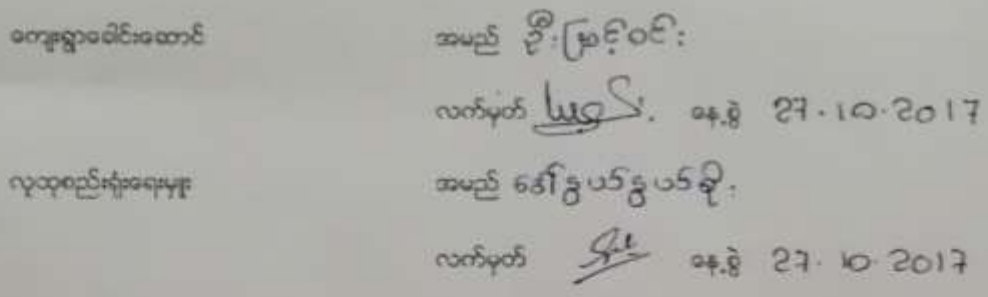 ကျေးရွာခေါင်းဆောင် အမည် ဦးမြင့်ဝင်း
လက်မှတ် နေ့စွဲ 27.10.2017
လူထုစည်းရုံးရေးမှူး အမည် ဒေါ်နွယ်နွယ်စိုး
လက်မှတ် နေ့စွဲ 27.10.2017